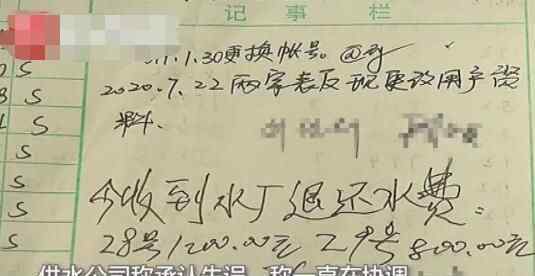 记事栏
1.30更换帐号。
2020.7.22两家表反现更改用户资
料.
S
S
S
S
S
S
S
今收到水厂退还水费:
28号1200.00元 29号800.00元
供水公司称承认失误,称一直在协调